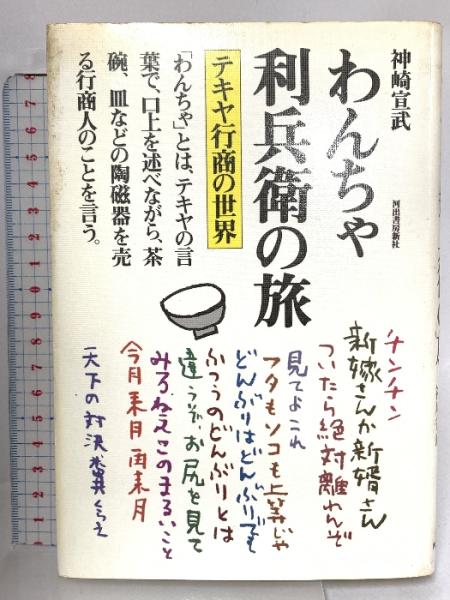 神崎宣武
わんちゃ
利兵衛の旅
河出書房新社
テキヤ行商の世界
「わんちゃ」とは、テキヤの言
葉で、口上を述べながら、茶
碗、皿などの陶磁器を売
る行商人のことを言う。
チンチン
新嫁さんか新婿さん
ついたら絶対離れんぞ
見てよこれ
フタもソコも上等じゃ
どんぶりはどんぶりでも
ふつうのどんぶりとは
違うぞ、お尻を見て
みろねえこのまるいこと
今月来月再来月
天下の対決